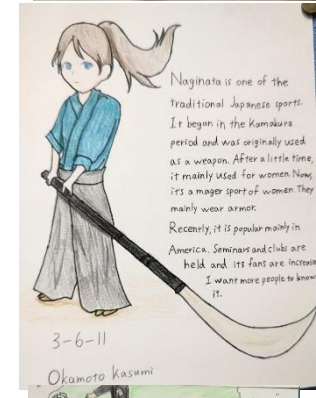 Naginata is one of the
traditional Japanese sports.
It began in the Kamakura
period and was originally used
as a weapon. After a little time,
it mainly used for women. Now,
it's a mager sport of women. They
mainly wear armor.
Recently, it is popular mainly in
America. Seminars and clubs are
held and its fans are increasin
I want more people to know
it.
3-6-11
Okamoto Kasumi